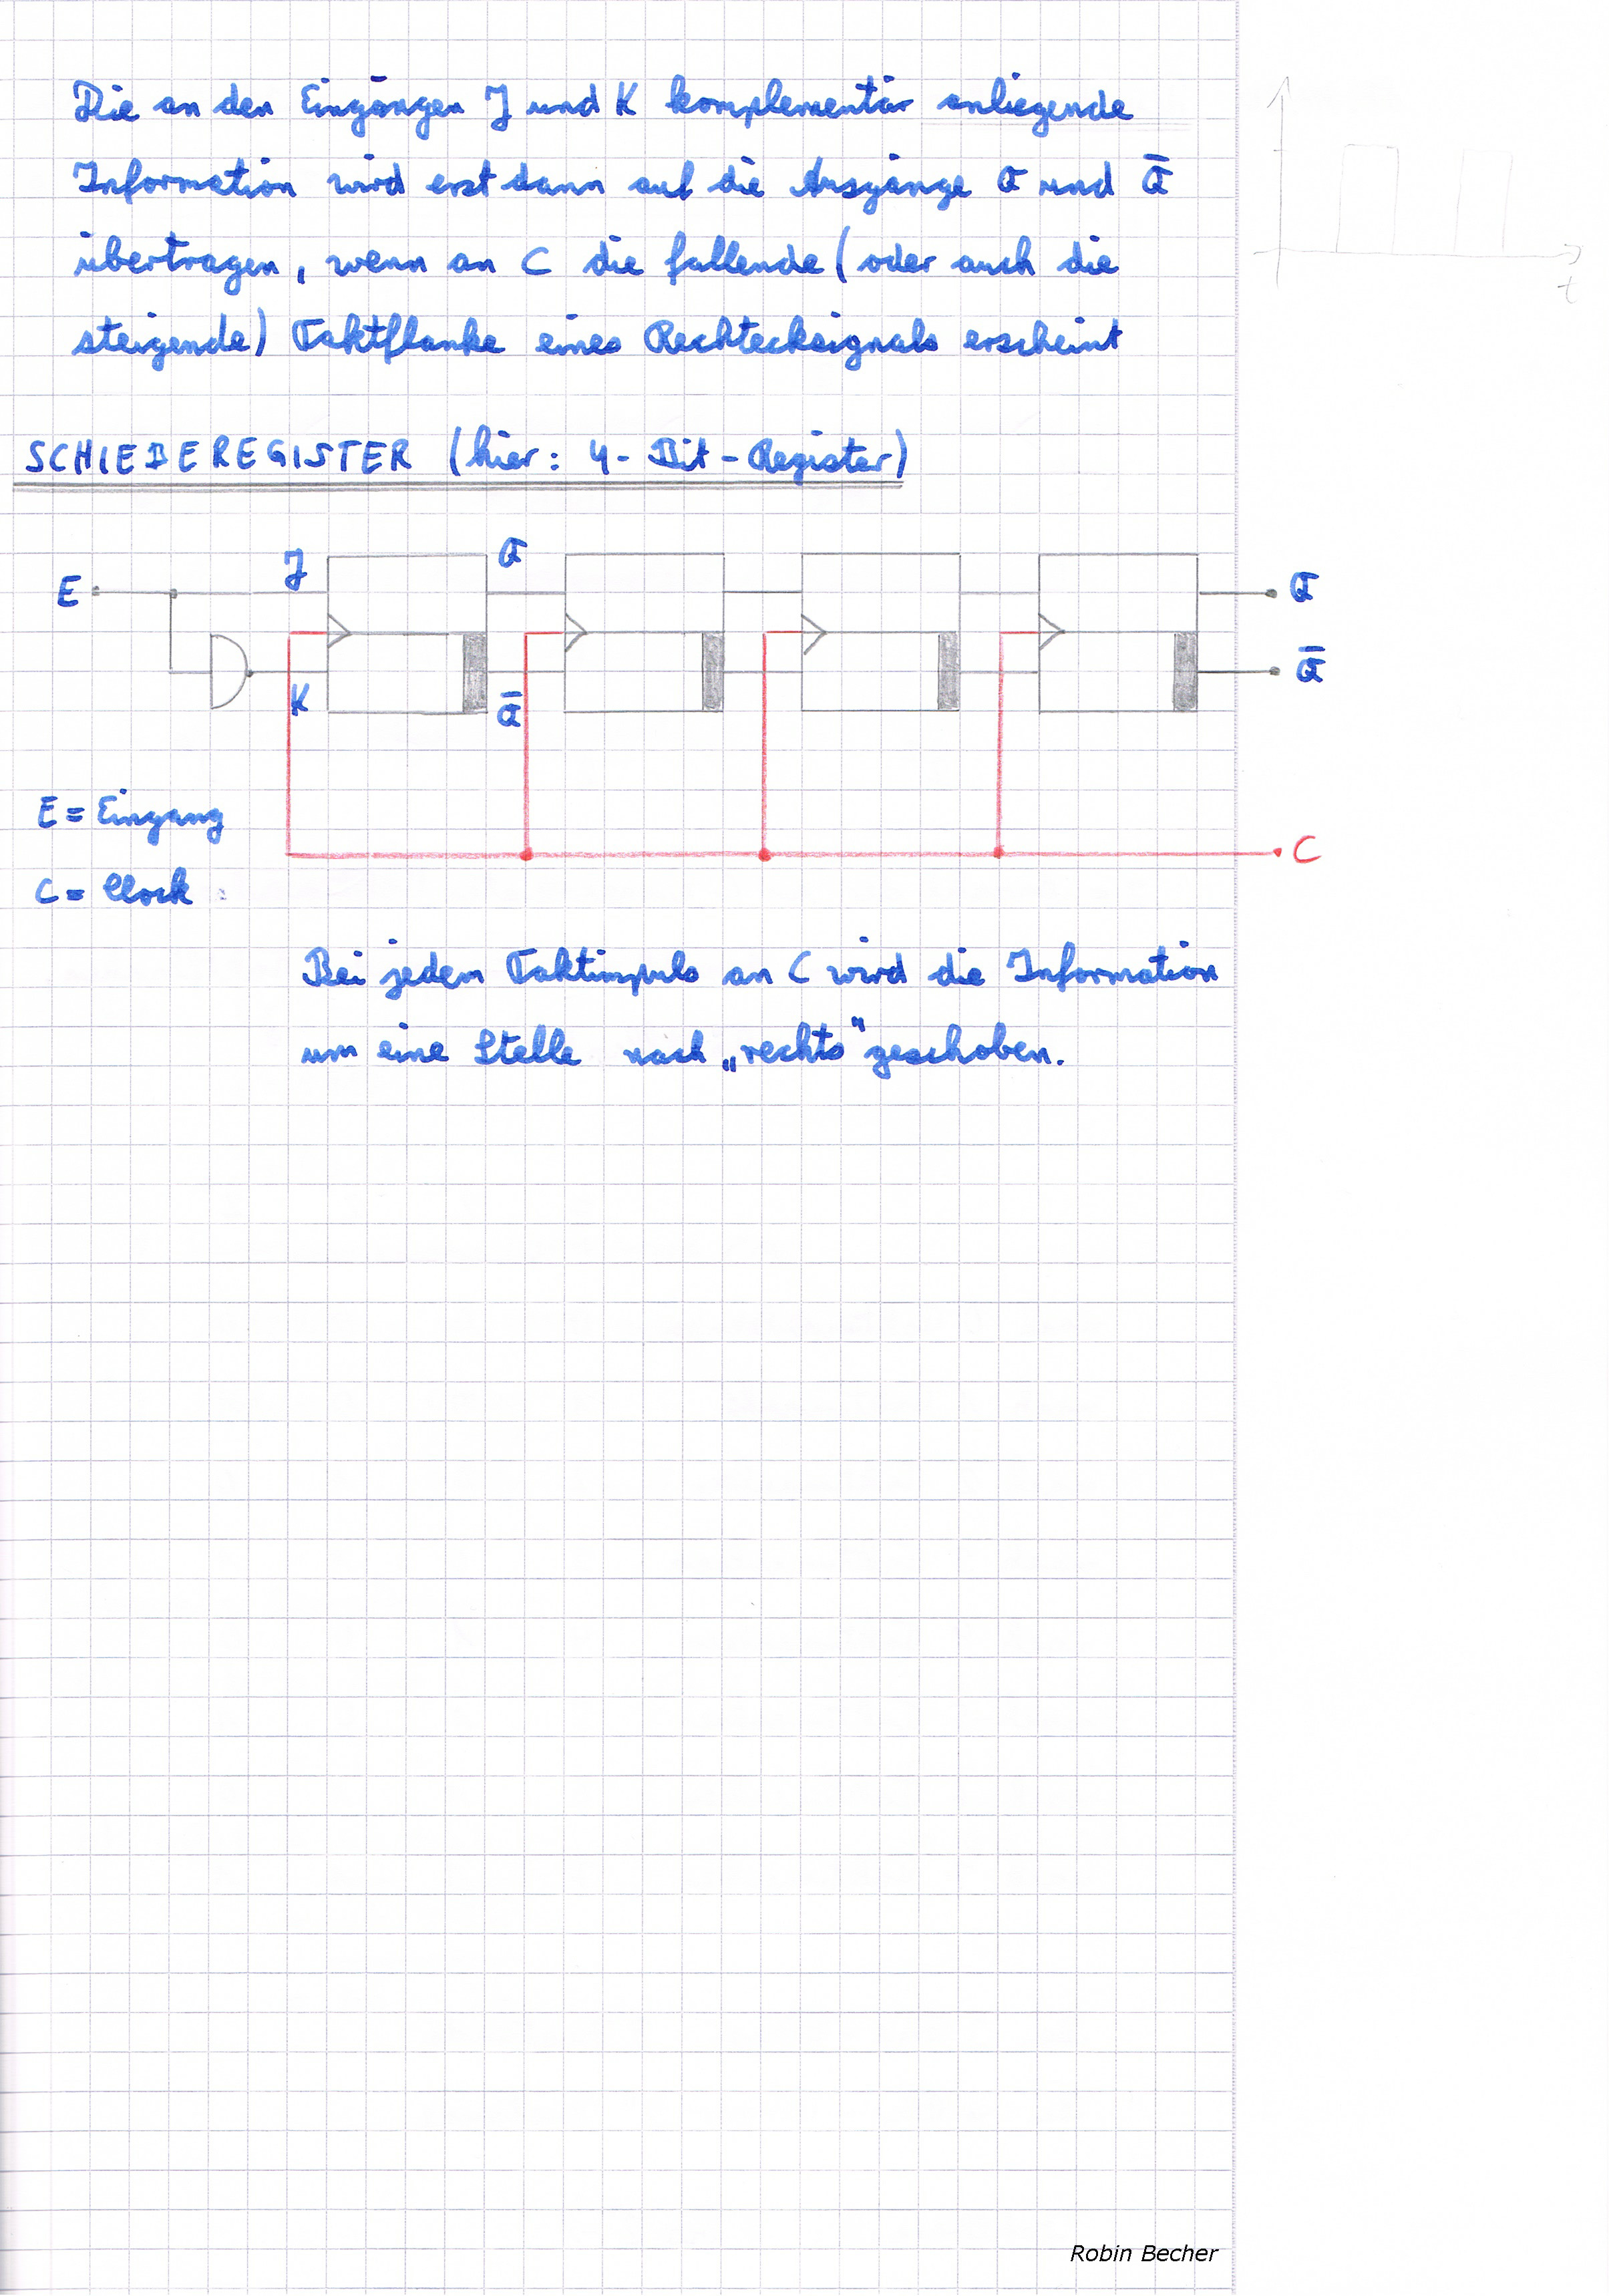 Die an den Eingängen J und K komplementär anliegende
Information wird erst dann auf die Ausgänge Q und Q̅
übertragen, wenn an C die fallende (oder auch die
steigende) Taktflanke eines Rechtecksignals erscheint
t
SCHIEBEREGISTER (hier: 4-Bit-Register)
J Q
E Q
K Q̅ Q̅
E = Eingang
C
C = Clock
Bei jedem Taktimpuls an C wird die Information
um eine Stelle nach „rechts“ geschoben.
Robin Becher